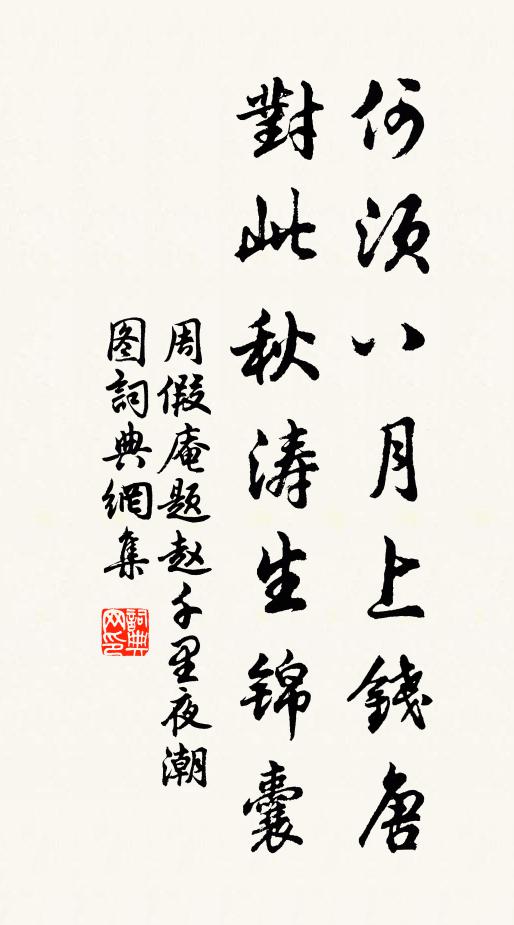 何須八月上錢唐
對此秋濤生锦囊
周假庵题赵千里夜潮
图詞典網集
詞典
网印